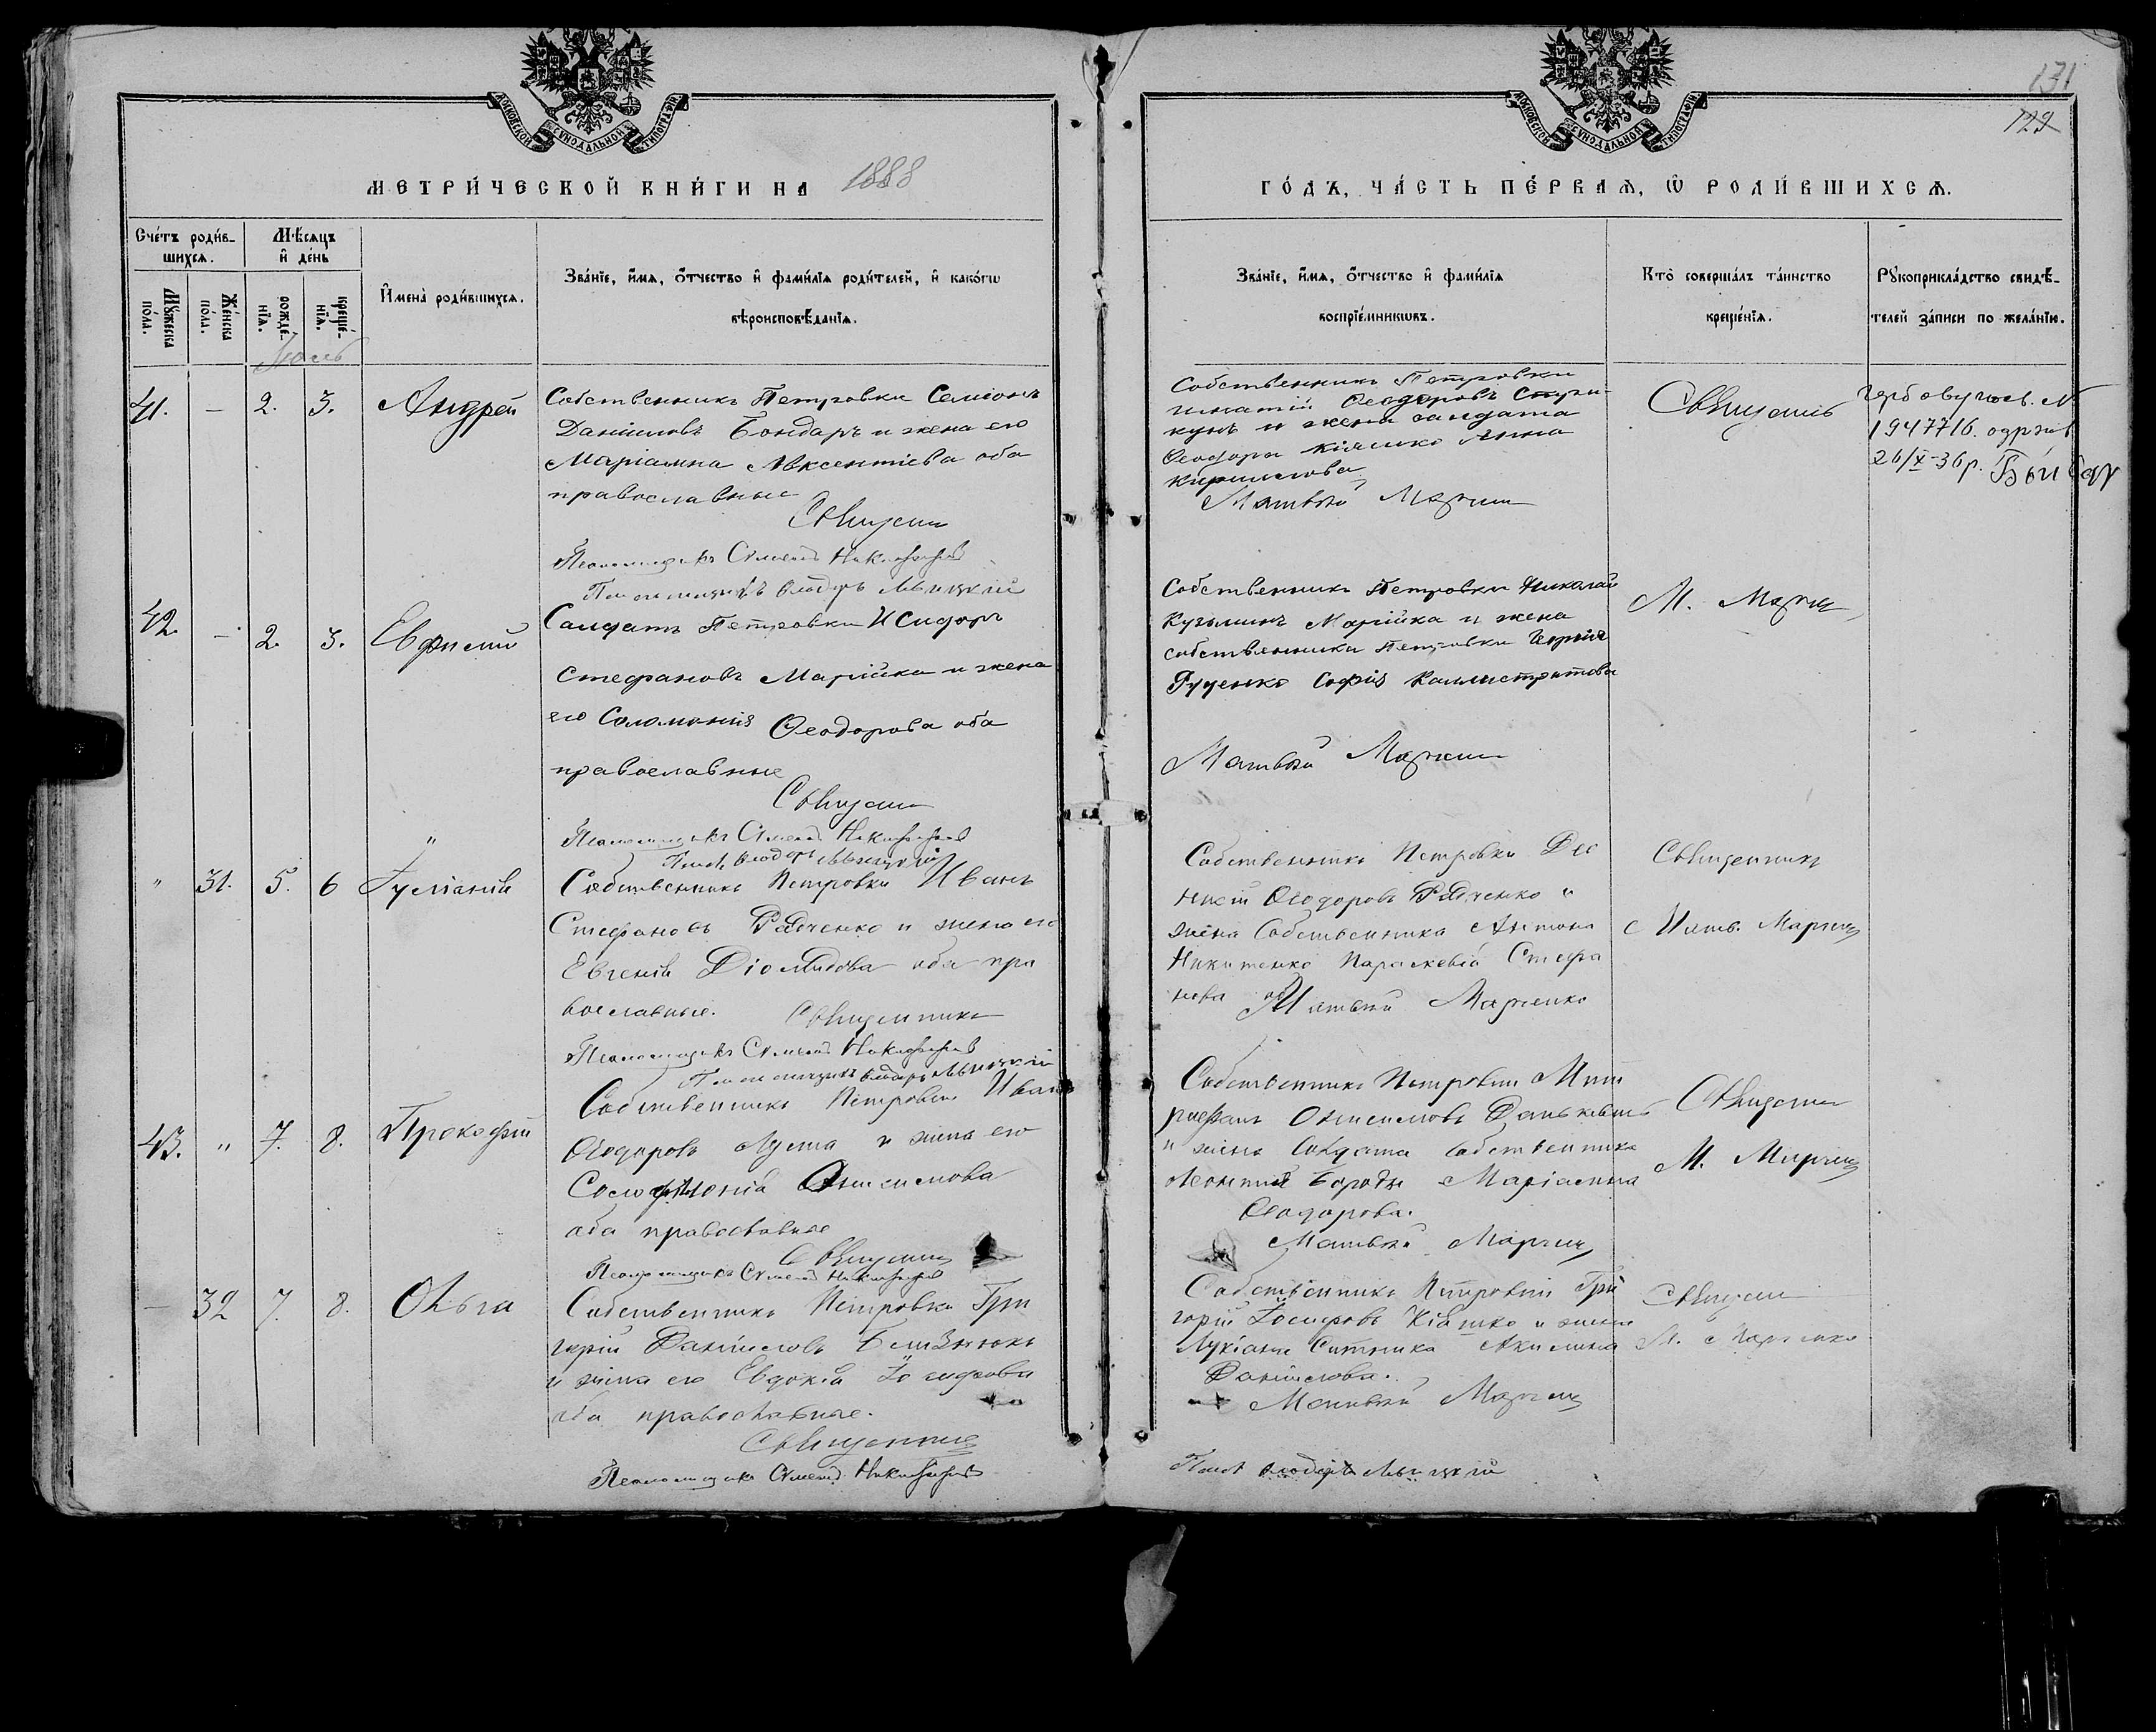 131
129
МОСКОВСКОЙ СѴНОДАЛЬНОЙ ТИПОГРАФІИ
МОСКОВСКОЙ СѴНОДАЛЬНОЙ ТИПОГРАФІИ
МЕТРИ́ЧЕСКОЙ КНИ́ГИ НА 1888
ГО́ДЪ, ЧА́СТЬ ПЕ́РВАѦ, Ѡ РОДИ́ВШИХСѦ.
Сче́тъ роди́в-
шихсѧ.
Мꙋ́жеска
по́ла.
Же́нска
по́ла.
Мѣ́сѧцъ
и҆ де́нь
рожде́-
нїѧ.
креще́-
нїѧ.
И҆мена̀ роди́вшихсѧ.
Зва́нїе, и҆́мѧ, ѻ҆́тчество и҆ фами́лїѧ роди́телей, и҆ како́гѡ
вѣроисповѣ́данїѧ.
Зва́нїе, и҆́мѧ, ѻ҆́тчество и҆ фами́лїѧ
воспрїе́мникѡвъ.
Кто̀ соверша́лъ та́инство
креще́нїѧ.
Рꙋкоприкла́дство свидѣ́-
телей за́писи по жела́нїю.
Іюль
41. — 2. 3. Андрей
Собственникъ Петровки Семіонъ
Даніиловъ Бондарь и жена его
Маріамна Авксентіева оба
православные
Священ
Псаломщикъ Симеонъ Никифоровъ
Псаломщикъ Ѳеодоръ
Собственникъ Петровки
Игнатій Ѳеодоровъ Стри
кунъ и жена солдата
Ѳеодора Кіяшко Анна
Кирилова
Матвѣй Марченко
Священ
1947716. одржав
26/X-36р.
42. — 2. 3. Евфимій
Солдатъ Петровки Исидоръ
Стефановъ Марійка и жена
его Соломонія Ѳеодорова оба
православные
Священ
Псаломщикъ Симеонъ Никифоровъ
Псал. Ѳеодоръ
Собственникъ Петровки Николай
Кузьминъ Марійка и жена
собственника Петровки Георгія
Руденко Софія Каллистратова
Матвѣй Марченко
М. Марчен
" 31. 5. 6 Іуліанія
Собственникъ Петровки Иванъ
Стефановъ Радченко и жена его
Евгенія Діомидова оба пра
вославные. Священникъ
Псаломщикъ Симеонъ Никифоровъ
Псаломщикъ Ѳеодоръ
Собственникъ Петровки Дио
нисій Ѳеодоровъ Радченко и
жена Собственника Антона
Никитенко Параскевія Стефа
нова
Матвѣй Марченко
Священникъ
Матв. Марчен
43. " 7. 8. Прокофій
Собственникъ Петровки Иванъ
Ѳеодоровъ и жена его
Соломонія Онисимова
оба православные
Священ
Псаломщикъ Симеонъ Никифоровъ
Собственникъ Петровки Мит
рофанъ Онисимовъ
и жена Солдата собственника
Леонтія Бороды Маріамна
Ѳеодорова.
Матвѣй Марчен
Священ
М. Марчен
— 32 7. 8. Ольга
Собственникъ Петровки Гри
горій Даніиловъ Близнюкъ
и жена его Евдокія Іосифова
оба православные.
Священник
Псаломщикъ Симеонъ Никифоровъ
Собственникъ Петровки Гри
горій Іосифовъ Кіяшко и жена
Лукіана Ситника Акилина
Даніилова.
Матвѣй Марчен
Священ
М. Марченко
Псал. Ѳеодоръ